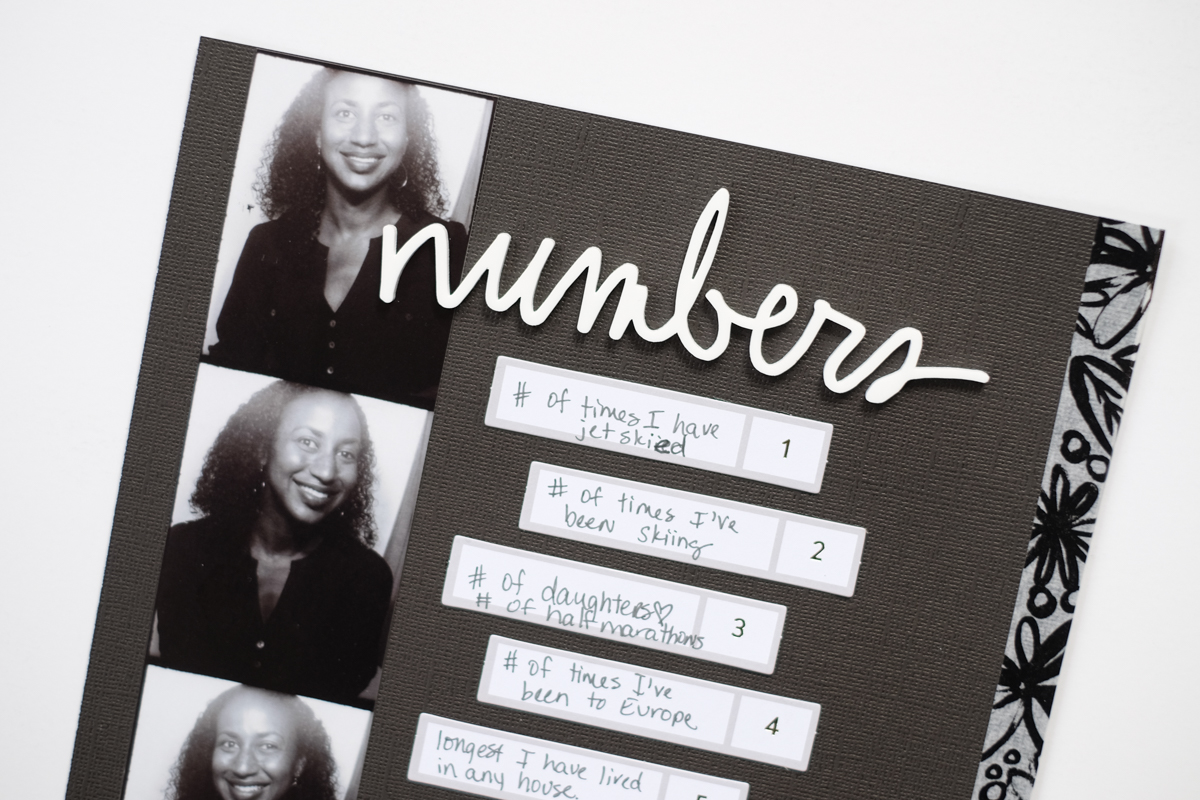 numbers
# of times I have
jet skied
1
# of times I've
been skiing
2
# of daughters♡
# of half marathons
3
# of times I've
been to Europe
4
longest I have lived
in any house.
5